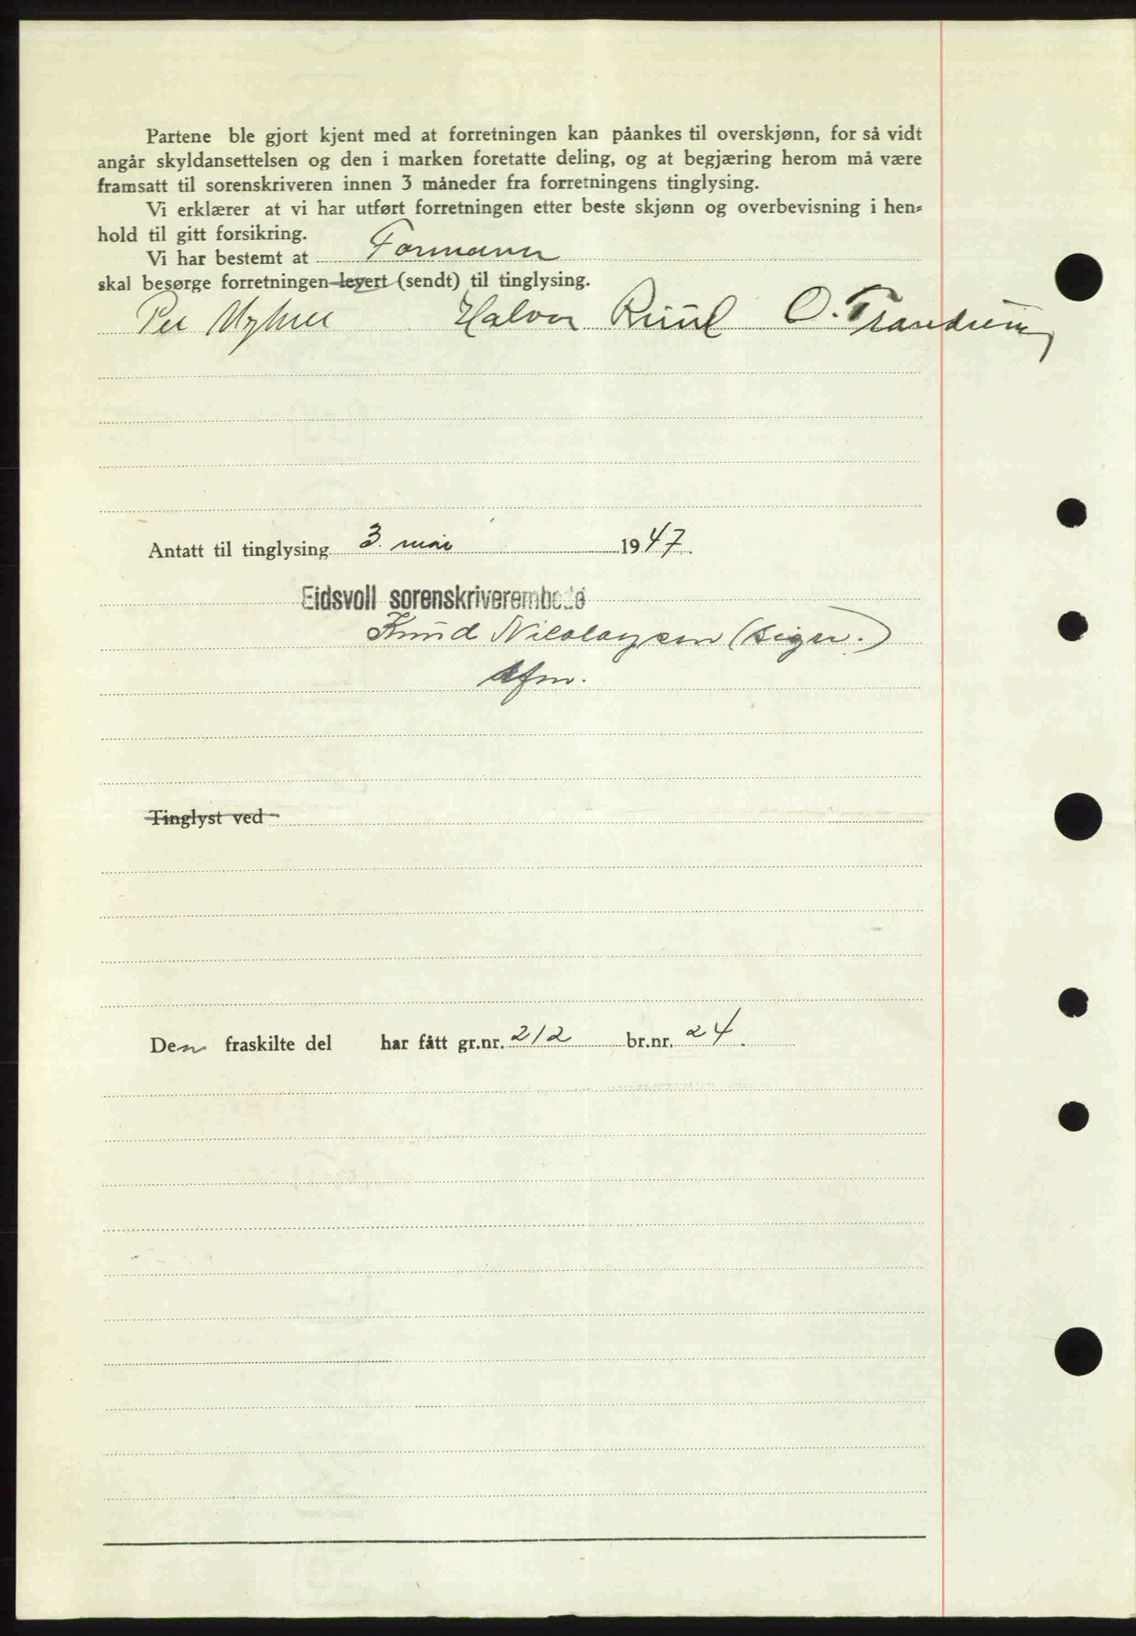 Partene ble gjort kjent med at forretningen kan påankes til overskjønn, for så vidt
angår skyldansettelsen og den i marken foretatte deling, og at begjæring herom må være
framsatt til sorenskriveren innen 3 måneder fra forretningens tinglysing.
Vi erklærer at vi har utført forretningen etter beste skjønn og overbevisning i hen-
hold til gitt forsikring.
Vi har bestemt at Formann
skal besørge forretningen levert (sendt) til tinglysing.
Per Myhrer Halvor Ruud O. Trandum
Antatt til tinglysing 3. mai 1947.
Eidsvoll sorenskriverembede
Knud Nicolaysen (sign.)
kfm.
Tinglyst ved
Den fraskilte del har fått gr.nr. 212 br.nr. 24.